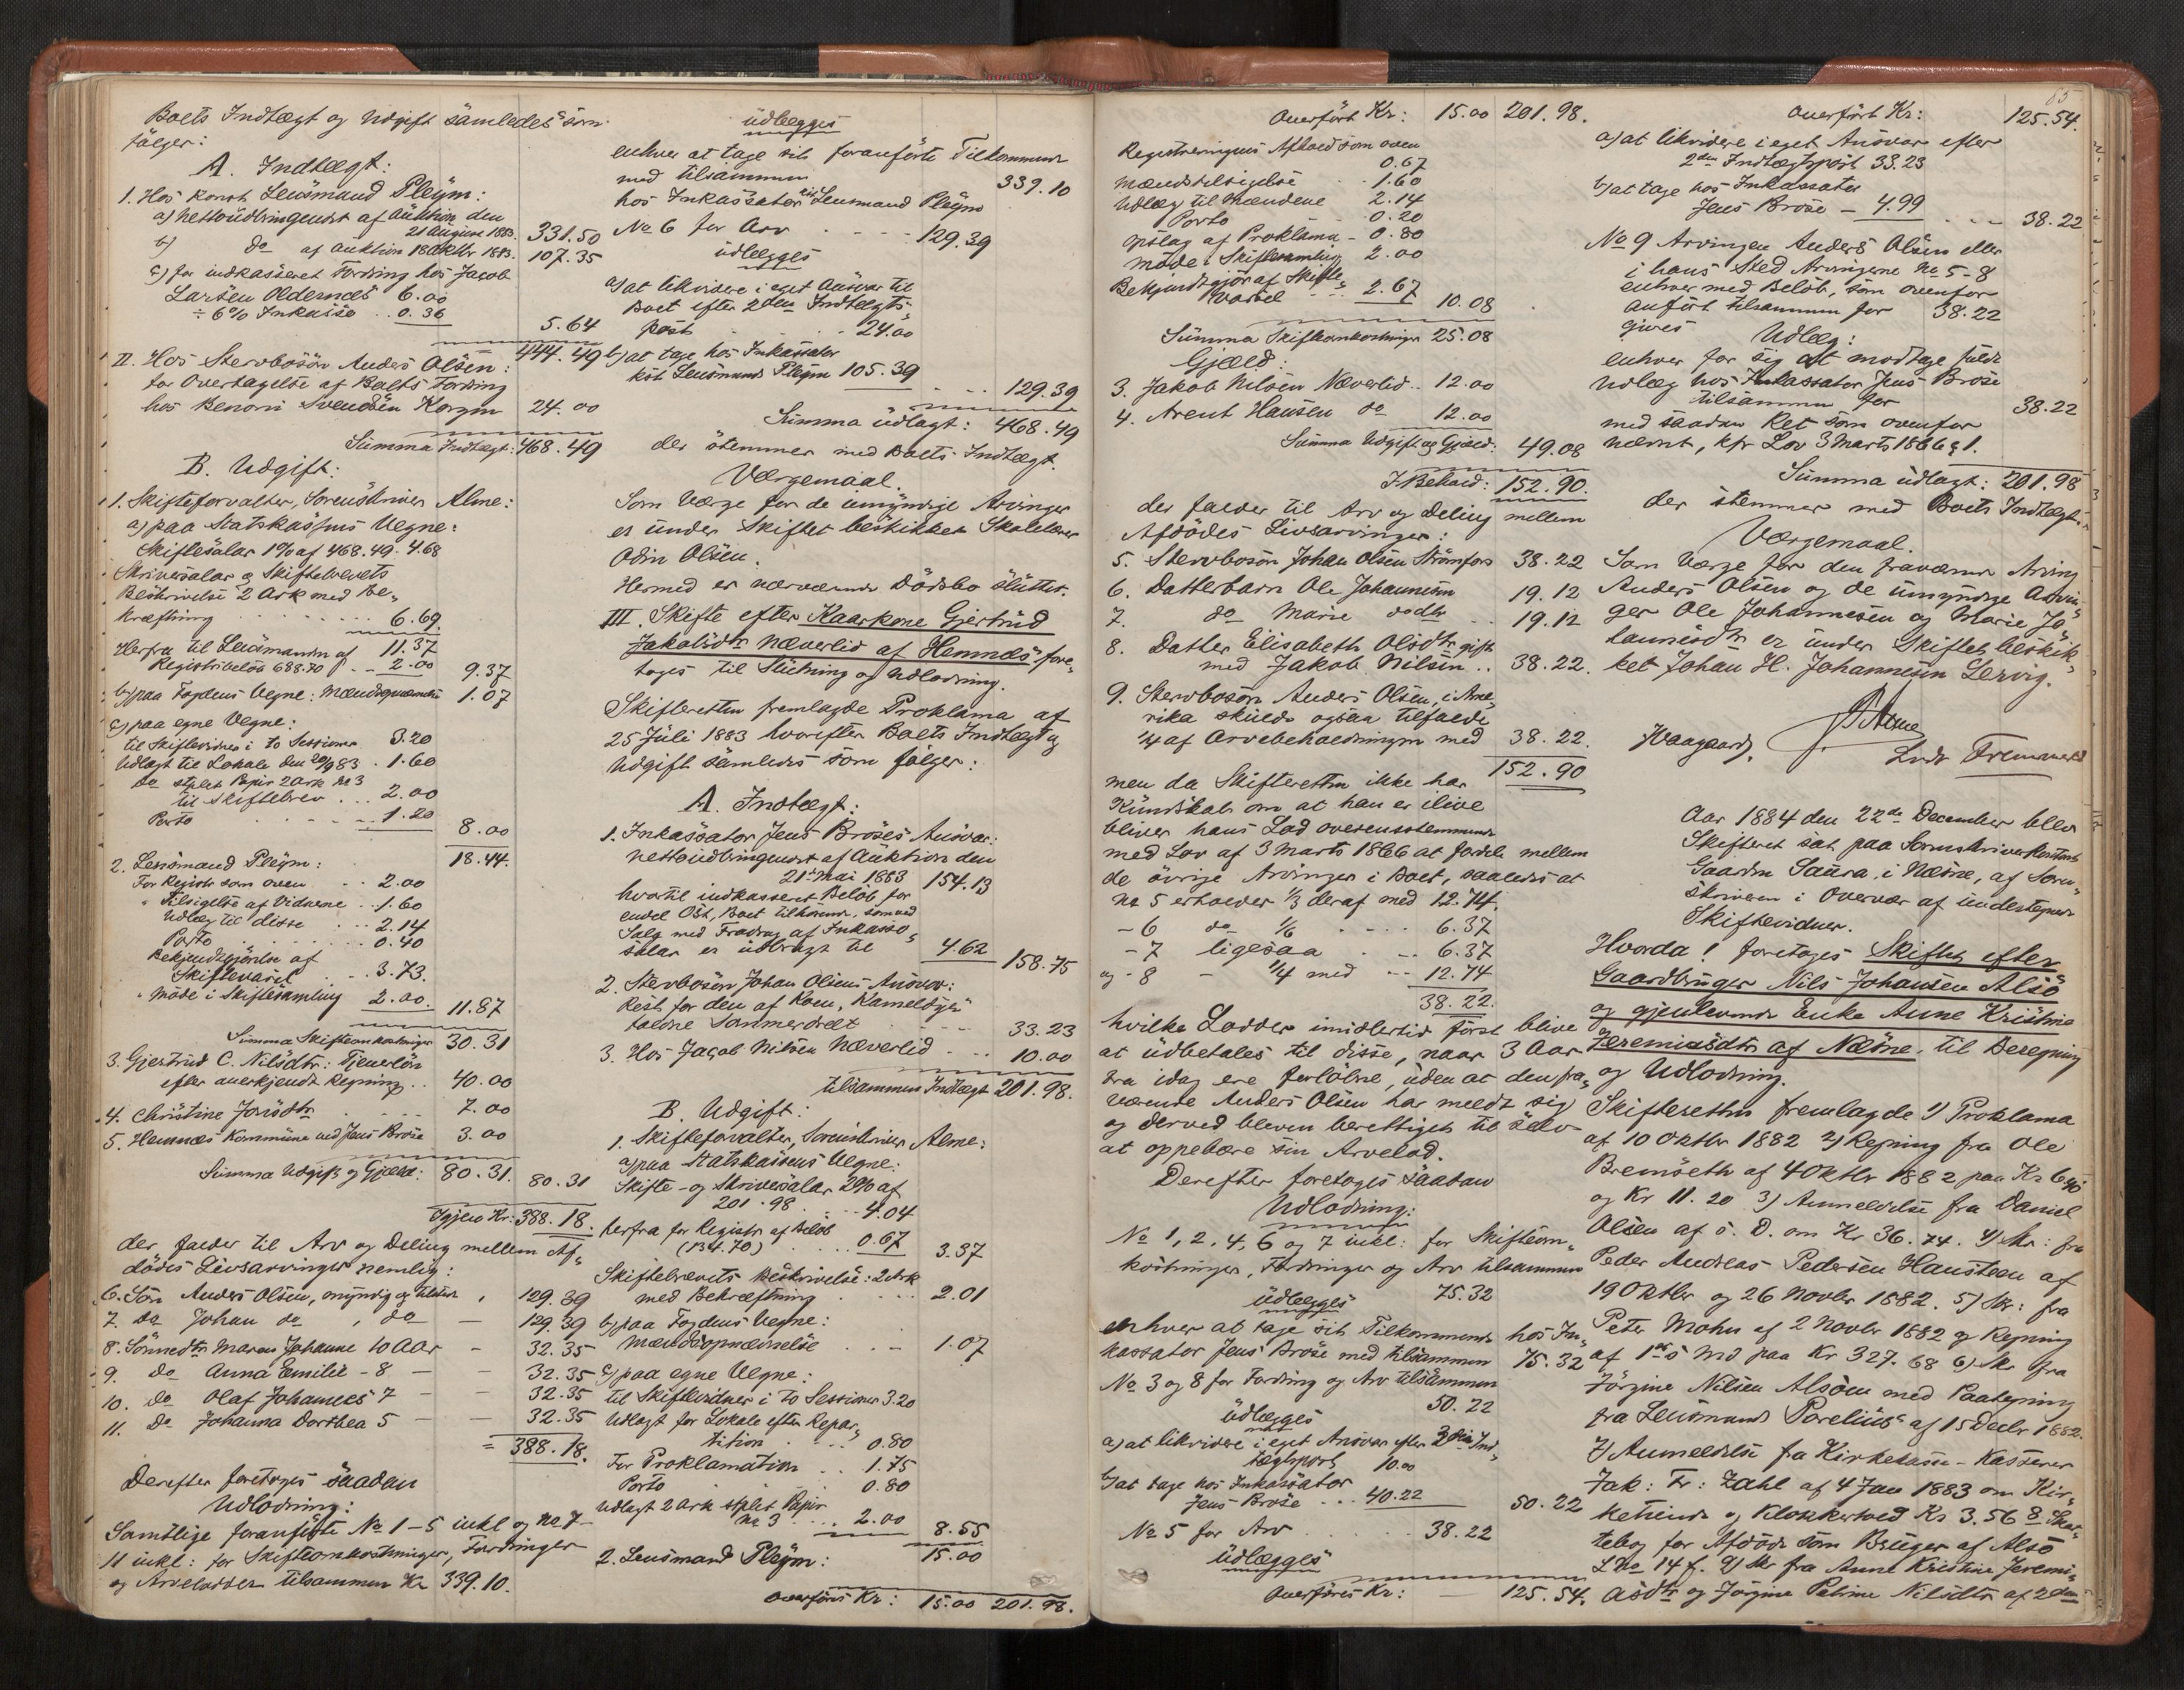 Boets Indtægt og Udgift samledes som
følger:
A. Indtægt:
1. Hos konst. Lensmand Pleym:
a) Nettoudbringendet af Auktion den
21 August 1883. 331.50
b) do af Auktion 18 Oktbr 1883. 107.35
c) for indkasseret Fordring hos Jacob
Larsen Oldernæs 6.00
÷ 6% Inkasso .. 0.36
5.64
444.49
II. Hos Stervbosøn Anders Olsen:
for Overtagelse af Boets Fordring
hos Benoni Svendsen Korgen 24.00
Summa Indtægt: 468.49
B. Udgift:
1. Skifteforvalter, Sorenskriver Alme:
a) paa Statskassens Vegne:
Skiftesalar 1% af 468.49. 4.68
Skriversalar og Skiftebrevets
Beskrivelse 2 Ark med Be-
kræftning 6.69.
11.37
Herfra til Lensmanden af
Registr. beløb 688.70 .. 2.00 9.37
b) paa Fogdens Vegne: Mændsopnævnelse 1.07
c) paa egne Vegne:
til Skiftevidner i to Sessioner 3.20
Udlagt til Lokale den 20/9 83 . 1.60
do stplet Papir 2 Ark No 3
til Skiftebrev ... 2.00
Porto 1.20
8.00
18.44.
2. Lensmand Pleym:
For Registr som oven .. 2.00
" Tilsigelse af Vidnerne .. 1.60
Udlæg til disse ... 2.14
Porto 0.40
Bekjendtgjørelse af
Skiftevarsel .. 3.73.
" Møde i Skiftesamling 2.00. 11.87
Summa Skifteomkostninger 30.31
3. Gjertrud C. Nilsdtr: Tjenerløn
efter anerkjendt Regning .. 40.00
4. Christine Jonsdtr .... 7.00
5. Hemnæs Kommune ved Jens Brose 3.00
Summa Udgift og Gjæld: 80.31. 80.31
Igjen Kr: 388.18.
der falder til Arv og Deling mellem Af-
dødes Livsarvinger nemlig:
6. Søn Anders Olsen, myndig og tilstede , 129.39
7. do Johan do , do — 129.39
8. Sønnedtr Maren Johanne 10 Aar - - 32.35
9. do Anna Emilie - 8 — 32.35
10. do Olaf Johannes 7 - — 32.35
11. do Johanna Dorthea 5 — — 32.35
= 388.18.
Derefter foretoges saadan
Udlodning:
Samtlige foranførte No 1-5 inkl og No 7-
11 inkl: for Skifteomkostninger, Fordringer
og Arvelodder tilsammen Kr 339.10.
udlægges
enhver at tage sit foranførte Tilkommende
med tilsammen 339.10
hos Inkassator kst Lensmand Pleym
No 6 for Arv - - - - 129.39
udlægges
a) at likvidere i eget Ansvar til
Boet efter 2den Indtægts-
post - - - 24.00
b) at tage hos Inkassator
kst Lensmand Pleym 105.39
... 129.39
Summa udlagt: 468.49
der stemmer med Boets Indtægt.
Værgemaal.
Som Værge for de umyndige Arvinger
er under Skiftet beskikket Skolelærer
Odin Olsen.
Hermed er nærværende Dødsbo sluttet.
III. Skifte efter Kaarkone Gjertrud
Jakobsdtr Næverlid af Hemnæs fore-
toges til Slutning og Udlodning.
Skifteretten fremlagde Proklama af
25 Juli 1883 hvorefter Boets Indtægt og
Udgift samledes som følger:
A. Indtægt:
1. Inkassator Jens Broses Ansvar:
Nettoudbringendet af Auktion den
21de Mai 1883 154.13
hvortil indkasseret Beløb for
endel Ost, Boet tilhørende, som ved
Salg med Fradrag af Inkasso-
salar er udbragt til 4.62 158.75
2. Stervbosøn Johan Olsens Ansvar:
Rest for den af Koen, Kameldyr
faldne Sommerdrøt - - - 33.23
3. Hos Jacob Nilsen Næverlid - .. 10.00
tilsammen Indtægt 201.98.
B. Udgift:
1. Skifteforvalter, Sorenskriver Alme:
a) paa Statskassens Vegne:
Skifte- og Skriversalar 2% af
201.98 - - - 4.04
herfra for Registr. af Beløb
(134.70) .... 0.67 3.37
Skiftebrevets Beskrivelse: 2 Ark
med Bekræftning . . . 2.01
b) paa Fogdens Vegne:
Mændsopnævnelse . . - 1.07
c) paa egne Vegne:
til Skiftevidner i to Sessioner 3.20
Udlagt for Lokale efter Repar-
tition - - - 0.80
For Proklamation .. 1.75
Porto 0.80
Udlagt 2 Ark stplet Papir
No 3 .... 2.00
8.55
15.00
2. Lensmand Pleym:
Overføres Kr: 15.00 201.98.
Overført Kr: 15.00 201.98.
Registreringens Afhold som oven
0.67
Mændstilsigelse .. 1.60
Udlæg til Mændene 2.14
Porto - - - 0.20
Opslag af Proklama - 0.80
Møde i Skiftesamling 2.00
Bekjendtgjør. af Skifte-
varsel ... 2.67
10.08
Summa Skifteomkostninger 25.08
Gjæld:
3. Jakob Nilsen Næverlid .. 12.00
4. Arent Hansen do 12.00
Summa Udgift og Gjæld: 49.08
I Behold: 152.90.
der falder til Arv og Deling mellem
Afdødes Livsarvinger:
5. Stervbosøn Johan Olsen Strømfors 38.22
6. Datterbarn Ole Johannesen 19.12
7. do Marie dodtr .. 19.12
8. Datter Elisabeth Olsdtr gift
med Jakob Nilsen .. 38.22.
9. Stervbosøn Anders Olsen, i Ame-
rika skulde ogsaa tilfalde
1/4 af Arvebeholdningen med 38.22.
152.90
men da Skifteretten ikke har
Kundskab om at han er ilive
bliver hans Lod overensstemmende
med Lov af 3 Marts 1866 at fordele mellem
de øvrige Arvinger i Boet, saaledes at
No 5 erholder 1/3 deraf med 12.74.
- 6 do 1/6 - - - - 6.37
- 7 ligesaa . - .. 6.37
og - 8 - 1/4 med .. 12.74
38.22.
hvilke Lodder imidlertid først blive
at udbetales til disse, naar 3 Aar
fra idag ere forløbne, uden at den fra-
værende Anders Olsen har meldt sig
og derved bleven berettiget til selv
at oppebære sin Arvelod.
Derefter foretoges saadan
Udlodning:
No 1, 2, 4, 6 og 7 inkl: for Skifteom-
kostninger, Fordringer og Arv tilsammen
75.32
udlægges
enhver at tage sit Tilkommende hos In-
kassator Jens Brose med tilsammen 75.32
No 3 og 8 for Fordring og Arv tilsammen
50.22
udlægges
a) at likvidere i eget Ansvar efter 3die Ind-
tægtspost 10.00
b) at tage hos Inkassator
Jens Brose ... 40.22
50.22
No 5 for Arv . . . . . 38.22
udlægges
Overføres Kr: — 125.54.
85
Overført Kr: 125.54.
a) at likvidere i eget Ansvar efter
2den Indtægtspost 33.23
b) at tage hos Inkassator
Jens Brose — 4.99
- - - 38.22
No 9 Arvingen Anders Olsen eller
i hans Sted Arvingerne No 5-8
enhver med Beløb, som ovenfor
anført tilsammen for 38.22
gives Udlæg:
enhver for sig at modtage fuldt
Udlæg hos Inkassator Jens Brose
tilsammen for 38.22
med saadan Ret som ovenfor
nævnt, kfr Lov 3 Marts 1866 § 1.
Summa udlagt: 201.98
der stemmer med Boets Indtægt.
Værgemaal.
Som Værge for den fraværende Arving
Anders Olsen og de umyndige Arvin-
ger Ole Johannesen og Marie Jo-
hannesdtr er under Skiftet beskik-
ket Johan H. Johannesen Lervig.
Alme
Haagaard.
Aar 1884 den 22de December blev
Skifteret sat paa Sorenskriverkontoret
Gaarden Saura i Næsne, af Soren-
skriveren i Overvær af undertegnede
Skiftevidner.
Hvorda! foretoges Skiftet efter
Gaardbruger Nils Johansen Alsø
og gjenlevende Enke Anne Kristine
Jeremiasdtr af Næsne, til Beregning
og Udlodning.
Skifteretten fremlagde 1) Proklama
af 10 Oktbr 1882 2) Regning fra Ole
Bremseth af 4 Oktbr 1882 paa Kr 6.40
og Kr 11.20 3) Anmeldelse fra Daniel
Olsen af s. D. om Kr 36.74. 4) Skr: fra
Peder Andreas Pedersen Hansteen af
19 Oktbr og 26 Novbr 1882. 5) Skr: fra
Peter Mohn af 2 Novbr 1882 og Regning
af 1st s Md paa Kr 327.68 6) Skr fra
Jørgine Nilsen Alsøen med Paategning
fra Lensmand Parelius af 15 Decbr 1882.
7) Anmeldelse fra Kirkekasse-Kasserer
Jak: Fr: Zahl af 4 Jan 1883 om Kir-
ketiende og Klokkertold Kr 3.56 8. Skat-
tebog for Afdøde som Bruger af Alsø
L No 14 f. 9) Skr fra Anne Kristine Jeremi-
asdtr og Jørgine Petrine Nilsdtr af 2den